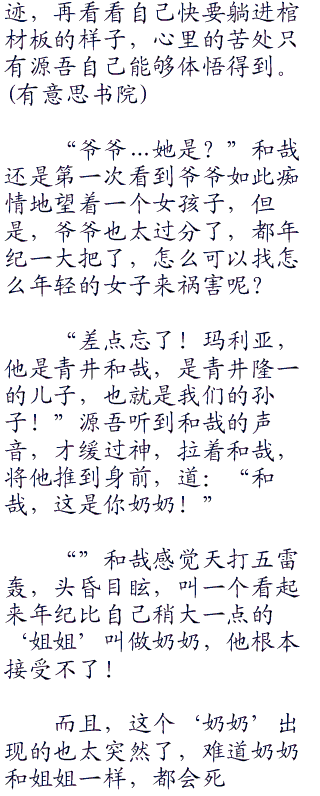 迹，再看看自己快要躺进棺
材板的样子，心里的苦处只
有源吾自己能够体悟得到。
(有意思书院)
“爷爷…她是？”和哉
还是第一次看到爷爷如此痴
情地望着一个女孩子，但
是，爷爷也太过分了，都年
纪一大把了，怎么可以找怎
么年轻的女子来祸害呢？
“差点忘了！玛利亚，
他是青井和哉，是青井隆一
的儿子，也就是我们的孙
子！”源吾听到和哉的声
音，才缓过神，拉着和哉，
将他推到身前，道：“和
哉，这是你奶奶！”
“”和哉感觉天打五雷
轰，头昏目眩，叫一个看起
来年纪比自己稍大一点的
‘姐姐’叫做奶奶，他根本
接受不了！
而且，这个‘奶奶’出
现的也太突然了，难道奶奶
和姐姐一样，都会死